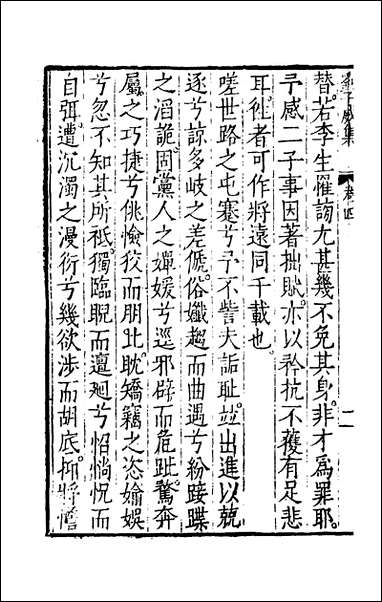 替若李生罹詢尤甚幾不免其身非才為罪耶
予感二子事因著拙賦亦以矜抗不獲有足悲
耳徃者可作將遠同千載也
嗟世路之屯蹇兮予不訾夫詬耻並出進以兢
逐兮諒多岐之差傂俗孅趨而曲遇兮紛踥蹀
之滔詭固黨人之嬋媛兮逕邪辟而危趾騖奔
屬之巧捷兮佻憸狡而朋比耽矯竊之恣婾娛
兮忽不知其所衹獨臨睨而邅廻兮怊惝怳而
自弭遭沉濁之漫衍兮幾欲涉而胡底抑將儋
集 卷四 二